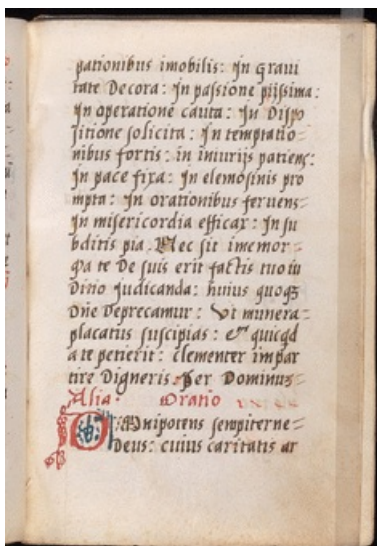 pationibus imobilis: In graui
tate Decora: In passione pijssima:
In operatione cauta: In Dispo
sitione solicita: In temptatio-
nibus fortis: in iniurijs patiens:
In pace fixa: In elemosinis pro
mpta: In orationibus feruens-
In misericordia efficax: In su
bditis pia. Nec sit inmemor-
Qa te De suis erit factis tuo iu
Dicio judicanda: huius quoqz
Dñe Deprecamur: Vt munera-
placatus suscipias: & quicqd
a te petierit: clementer impar
tire Digneris. Per Dominuz-
Alia Oratio
Omnipotens sempiterne-
Deus: cuius caritatis ar